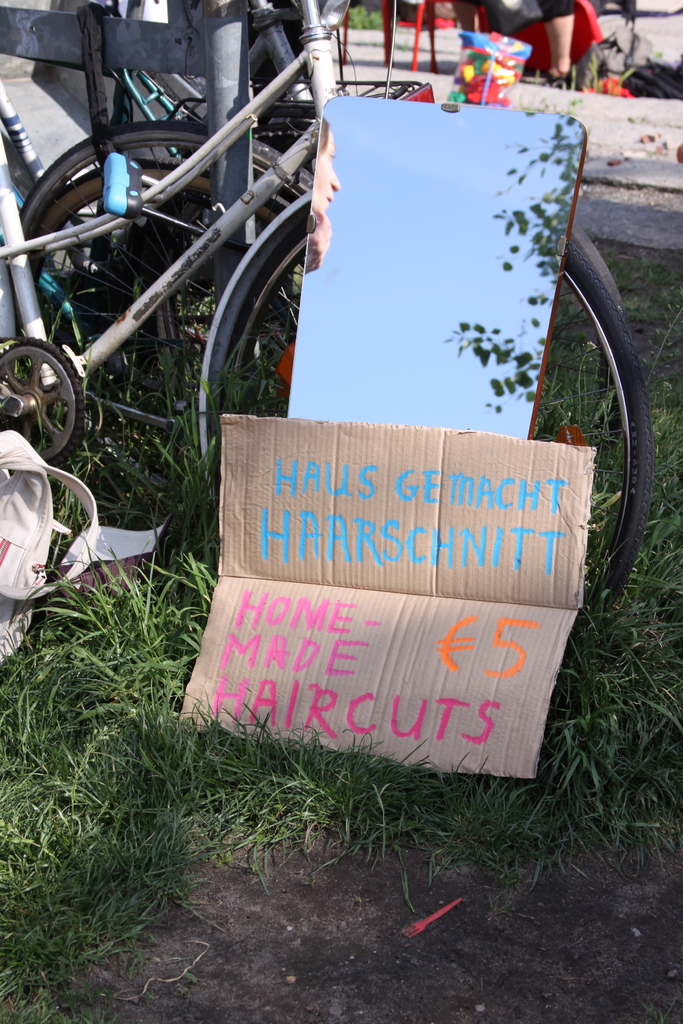 HAUS GEMACHT
HAARSCHNITT
HOME-
MADE €5
HAIRCUTS